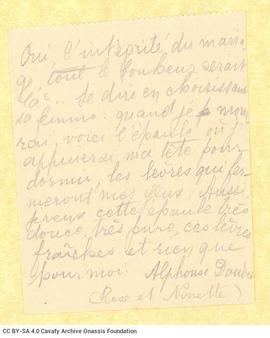 Oui, l'intégrité du maria-
ge, tout le bonheur serait
là... Se dire en choisissant
sa femme: quand je mour-
rai, voici l'épaule où j'
appuierai ma tête pour
dormir, les lèvres qui fer-
meront mes yeux. Aussi,
je veux cette épaule très
douce, très pure, ces lèvres
fraîches et rien que
pour moi. Alphonse Daudet
(Rose et Ninette)
CC BY-SA 4.0 Cavafy Archive Onassis Foundation